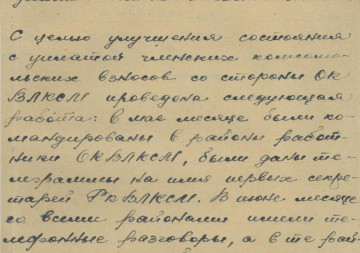 С целью улучшения состояния
с уплатой членских комсомо-
льских взносов со стороны ОК
ВЛКСМ проведена следующая
работа: в мае месяце были ко-
мандированы в районы работ-
ники ОК ВЛКСМ, были даны те-
леграммы на имя первых секре-
тарей РК ВЛКСМ. В июне месяце
со всеми районами имели те-
лефонные разговоры, а в те рай-